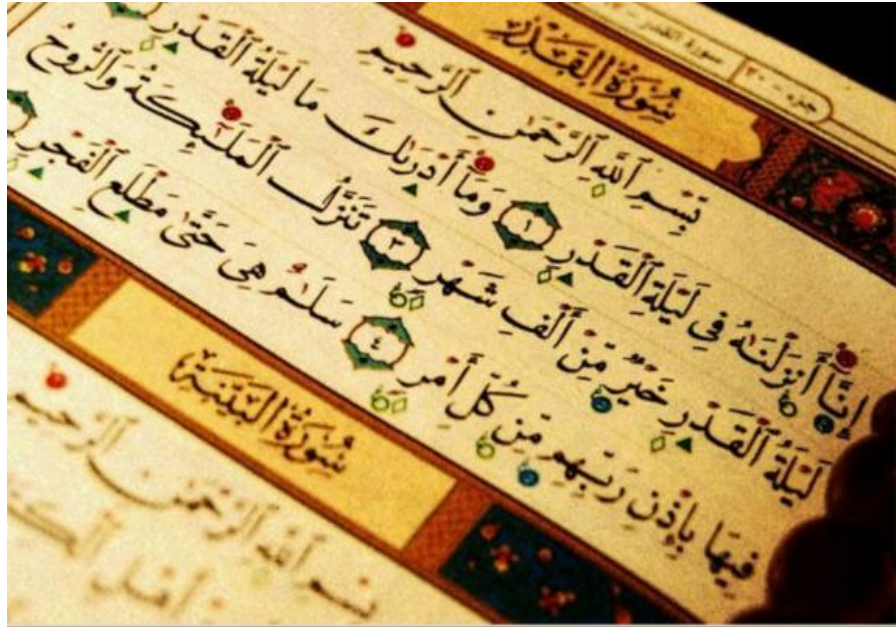 جزء - ٣٠ سورة القدر
سُورَةُ الْقَدْرِ
بِسْمِ ٱللَّهِ ٱلرَّحْمَٰنِ ٱلرَّحِيمِ
إِنَّآ أَنزَلْنَٰهُ فِى لَيْلَةِ ٱلْقَدْرِ ١ وَمَآ أَدْرَىٰكَ مَا لَيْلَةُ ٱلْقَدْرِ
لَيْلَةُ ٱلْقَدْرِ خَيْرٌ مِّنْ أَلْفِ شَهْرٍ ٣ تَنَزَّلُ ٱلْمَلَٰٓئِكَةُ وَٱلرُّوحُ
فِيهَا بِإِذْنِ رَبِّهِم مِّن كُلِّ أَمْرٍ ٤ سَلَٰمٌ هِىَ حَتَّىٰ مَطْلَعِ ٱلْفَجْرِ
سُورَةُ الْبَيِّنَةِ
بِسْمِ ٱللَّهِ ٱلرَّحْمَٰنِ ٱلرَّحِيمِ
أَهْلِ